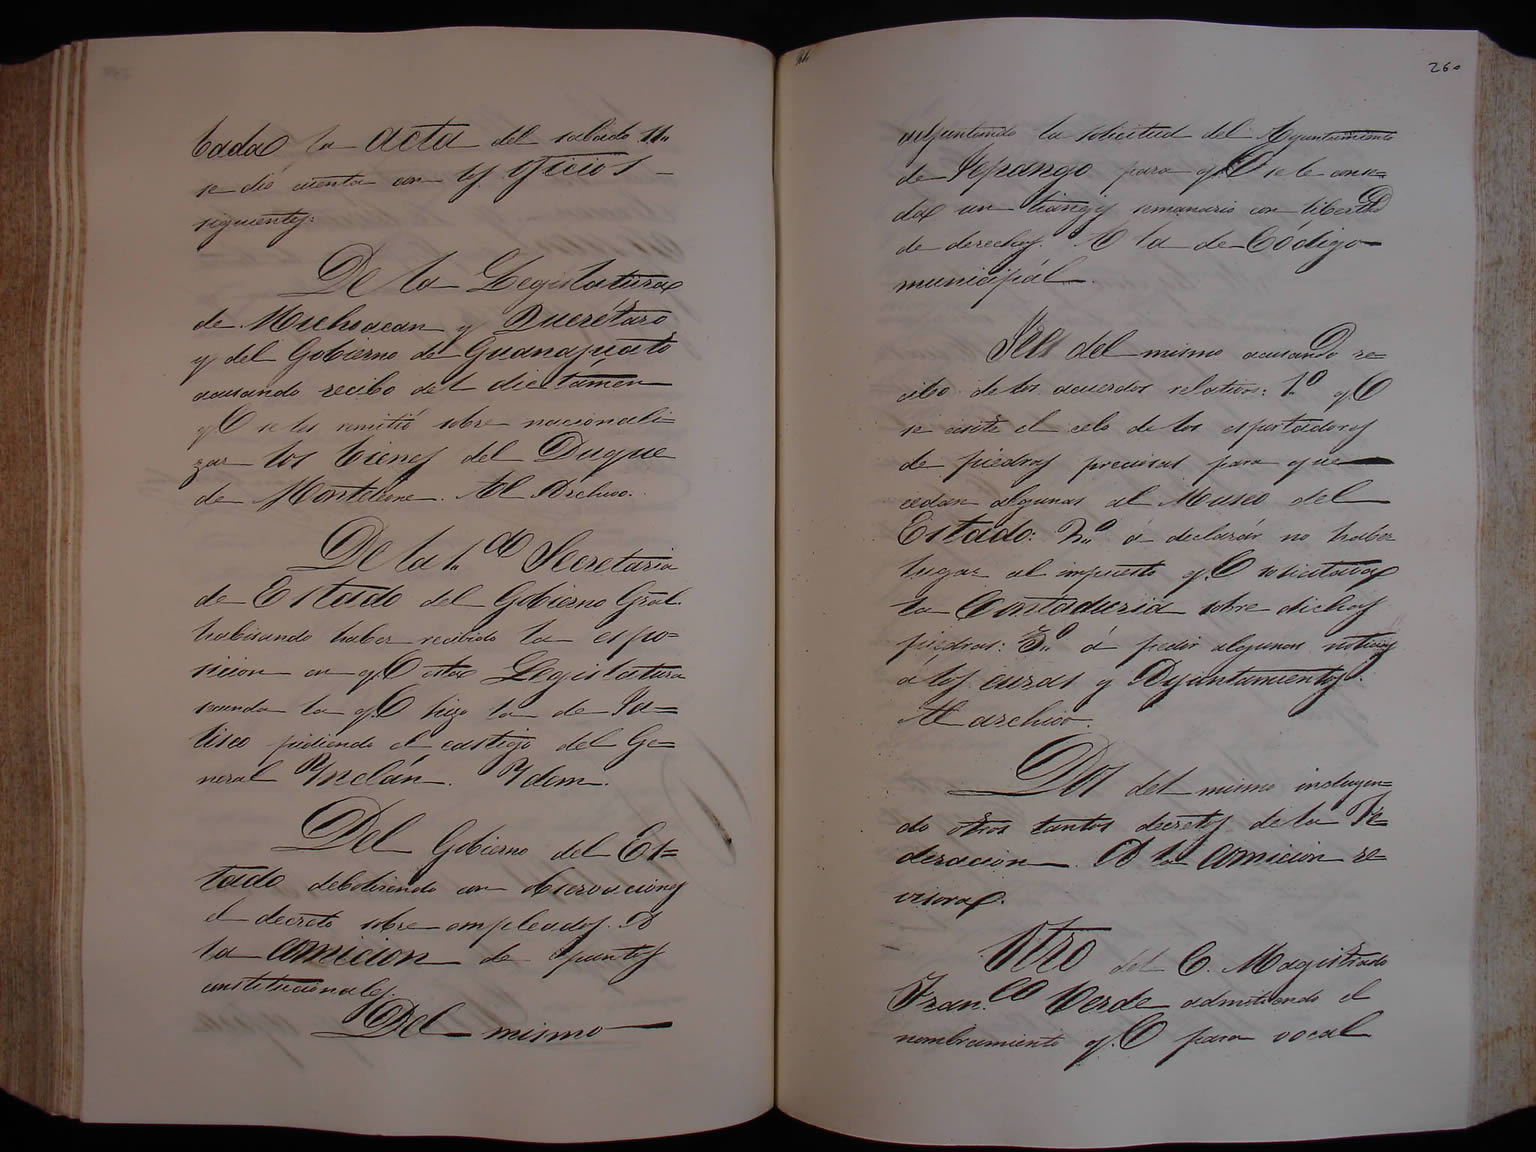 bada la acta del sabado 11.
se dió cuenta con los oficios
siguientes:
De la Legislatura
de Michoacan y Querétaro
y del Gobierno de Guanajuato
acusando recibo del dictamen
q.e se les remitió sobre nacionali-
zar los bienes del Duque
de Monteleone. Al Archivo.
De la 1.a Secretaria
de Estado del Gobierno Gral.
habisando haber recibido la espo-
sicion en q.e esta Legislatura
secunda la q.e hizo la de Ja=
lisco pidiendo el castigo del Ge=
neral Ynclán. Ydem.
Del Gobierno del Es=
tado debolviendo con observaciones
el decreto sobre empleados. A
la comicion de puntos
constitucionales.
Del mismo
260
adjuntando la solicitud del Ayuntamiento
de Tepango para q.e se le conce-
da un tiangis semanario con libertad
de derechos. A la de Código
municipál.
Tres del mismo acusando re=
cibo de los acuerdos relativos: 1.o q.e
se escite el celo de los espertadores
de piedras precisas para que
cedan algunas al Museo del
Estado: 2.o á declarár no haber
lugar al impuesto q.e solicitaba
la Contaduria sobre dichas
piedras: 3.o á pedir algunas noticias
á los curas y Ayuntamientos.
Al archivo.
Dos del mismo incluyen=
do otros tantos decretos de la Fe=
deracion. A la comicion re=
visora.
Otro del C. Magistrado
Fran.co Verde admitiendo el
nombramiento q.e para vocal